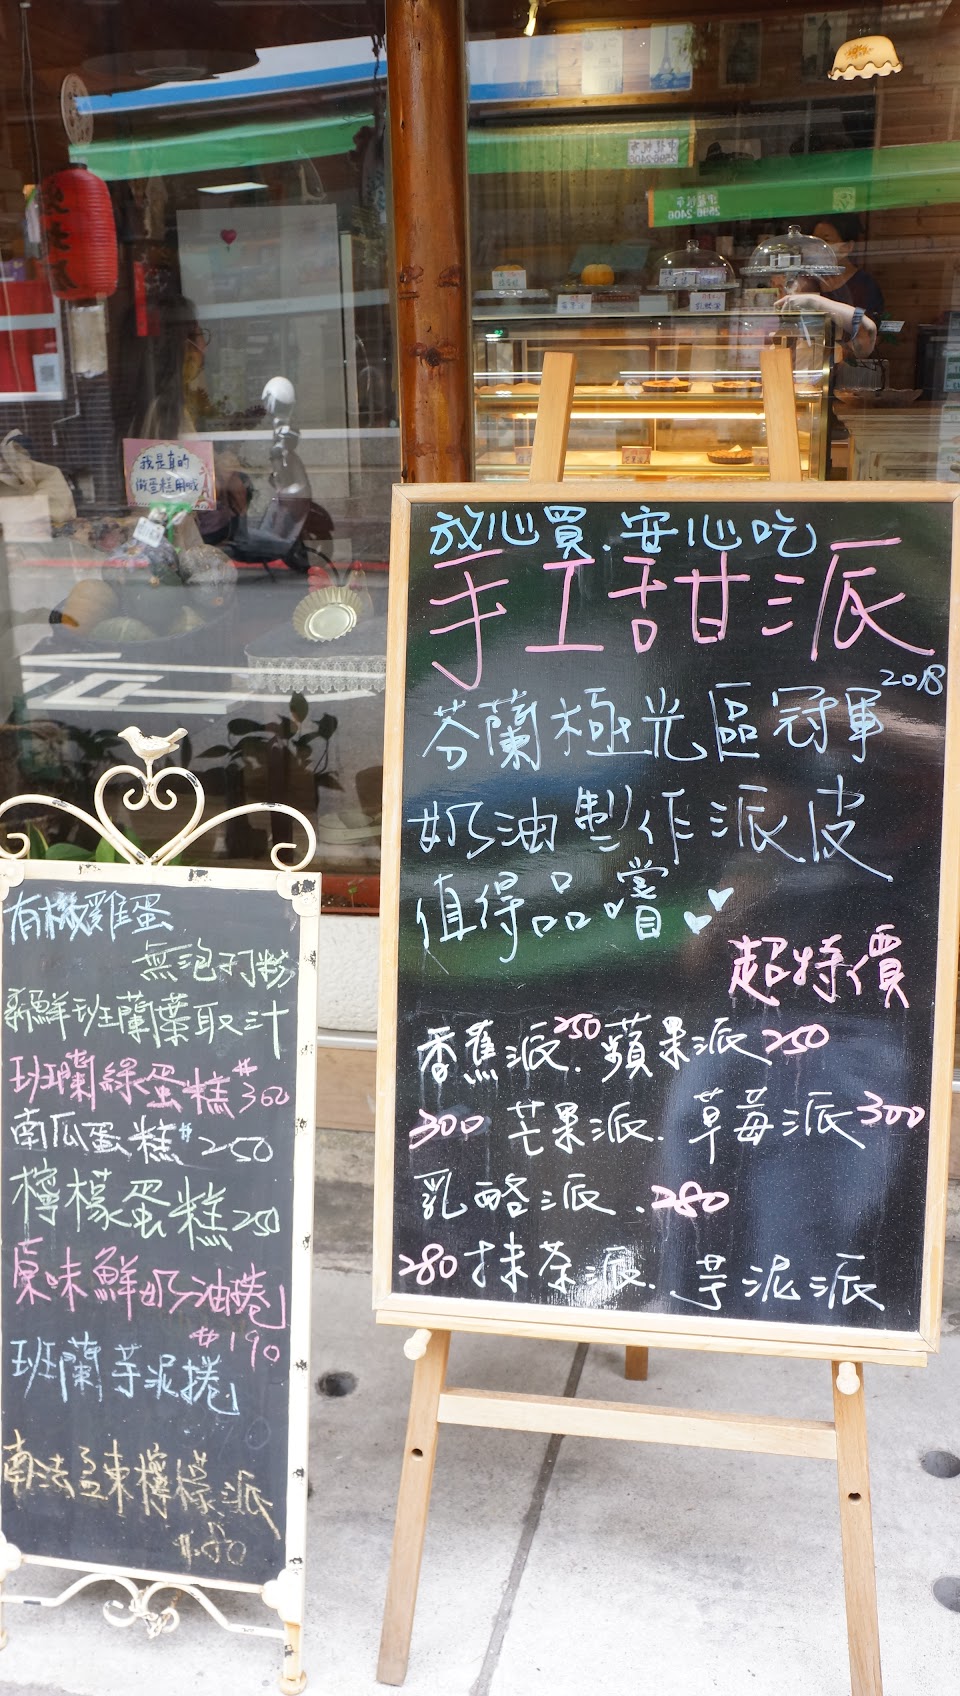 我是真的
做蛋糕用的
放心買.安心吃
手工甜派
2018
芬蘭極光區冠軍
奶油製作派皮
值得品嚐
超特價
香蕉派250.蘋果派250
300芒果派.草莓派300
乳酪派.280
280抹茶派.芋泥派
有機雞蛋
無泡打粉
新鮮班蘭葉取汁
班蘭綠蛋糕#360
南瓜蛋糕#250
檸檬蛋糕250
原味鮮奶油捲
#190
班蘭芋泥捲
南法孟東檸檬派
2596-2406